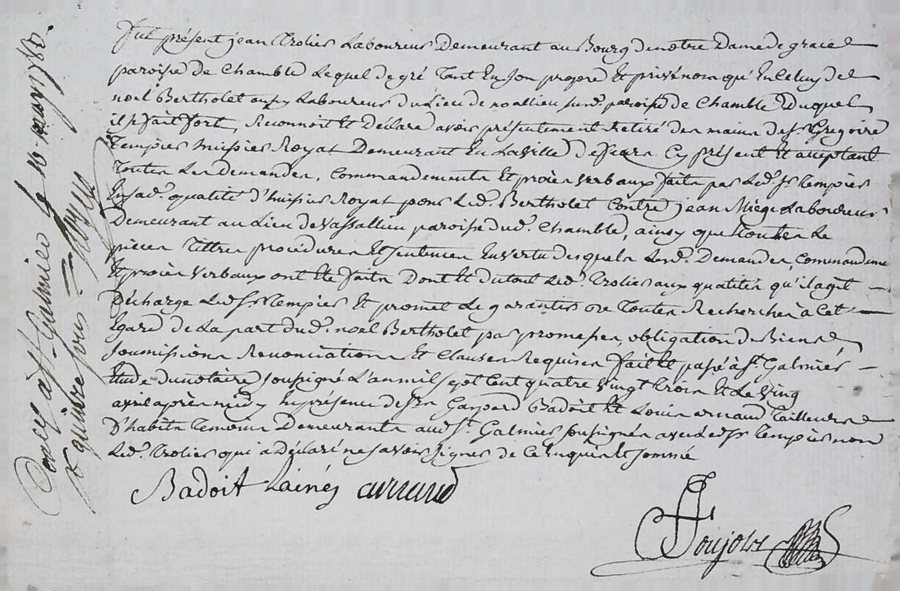 fut présent jean Trolies Laboureur Demeurant au Bourg de notre Dame de grace
paroisse de Chamble Lequel de gré Tant En son propre Et privé nom qu'En Celuy de
noël Bertholet aussy Laboureur du Lieu de noallieu susd. paroisse de Chamble Duquel
il se fait fort, Reconnoit Et Déclare avoir présentement Retiré des mains de sr Grégoire
Tempier huissier Royal Demeurant En la Ville de feurs Cy présent Et aceptant
Toutes Les Demandes, Commandements Et procès verbaux faits par Led. sr Tempier
En sad. qualité d'huissier Royal pour Led. Bertholet Contre jean Miége Laboureur
Demeurant au Lieu de Vassallieu paroisse dud. Chamble, ainsy que toutes Le
pièces Titres procédures Et sentences En vertu desquels Lesd. Demandes, Commandeme
Et procès verbaux ont Eté faits Dont Et du tout Led. Trolies aux qualités qu'il agit
Décharge Led. sr Tempier Et promet Le garantir de Toutes Recherches à Cet
Egard de La part dud. noël Bertholet par promesses, obligation de Biens
soumissions Renonciations Et Clauses Requises fait Et passé à st. Galmier
Etude du notaire soussigné L'an mil sept Cent quatre vingt trois Et Le vingt
avril après midy En présence de srs Gaspard Badoit Et Louis arnaud Tailleurs
D'habits Temoins Demeurants aud. st. Galmier soussignés avec led. sr Tempier non
Led. Trolies qui a Déclaré ne savoir signer de Ce Enquis Et sommé
Badoit Lainés arnaud
Soujols
Con.lé à st Galmier le 10 may 1783.
quinze sous